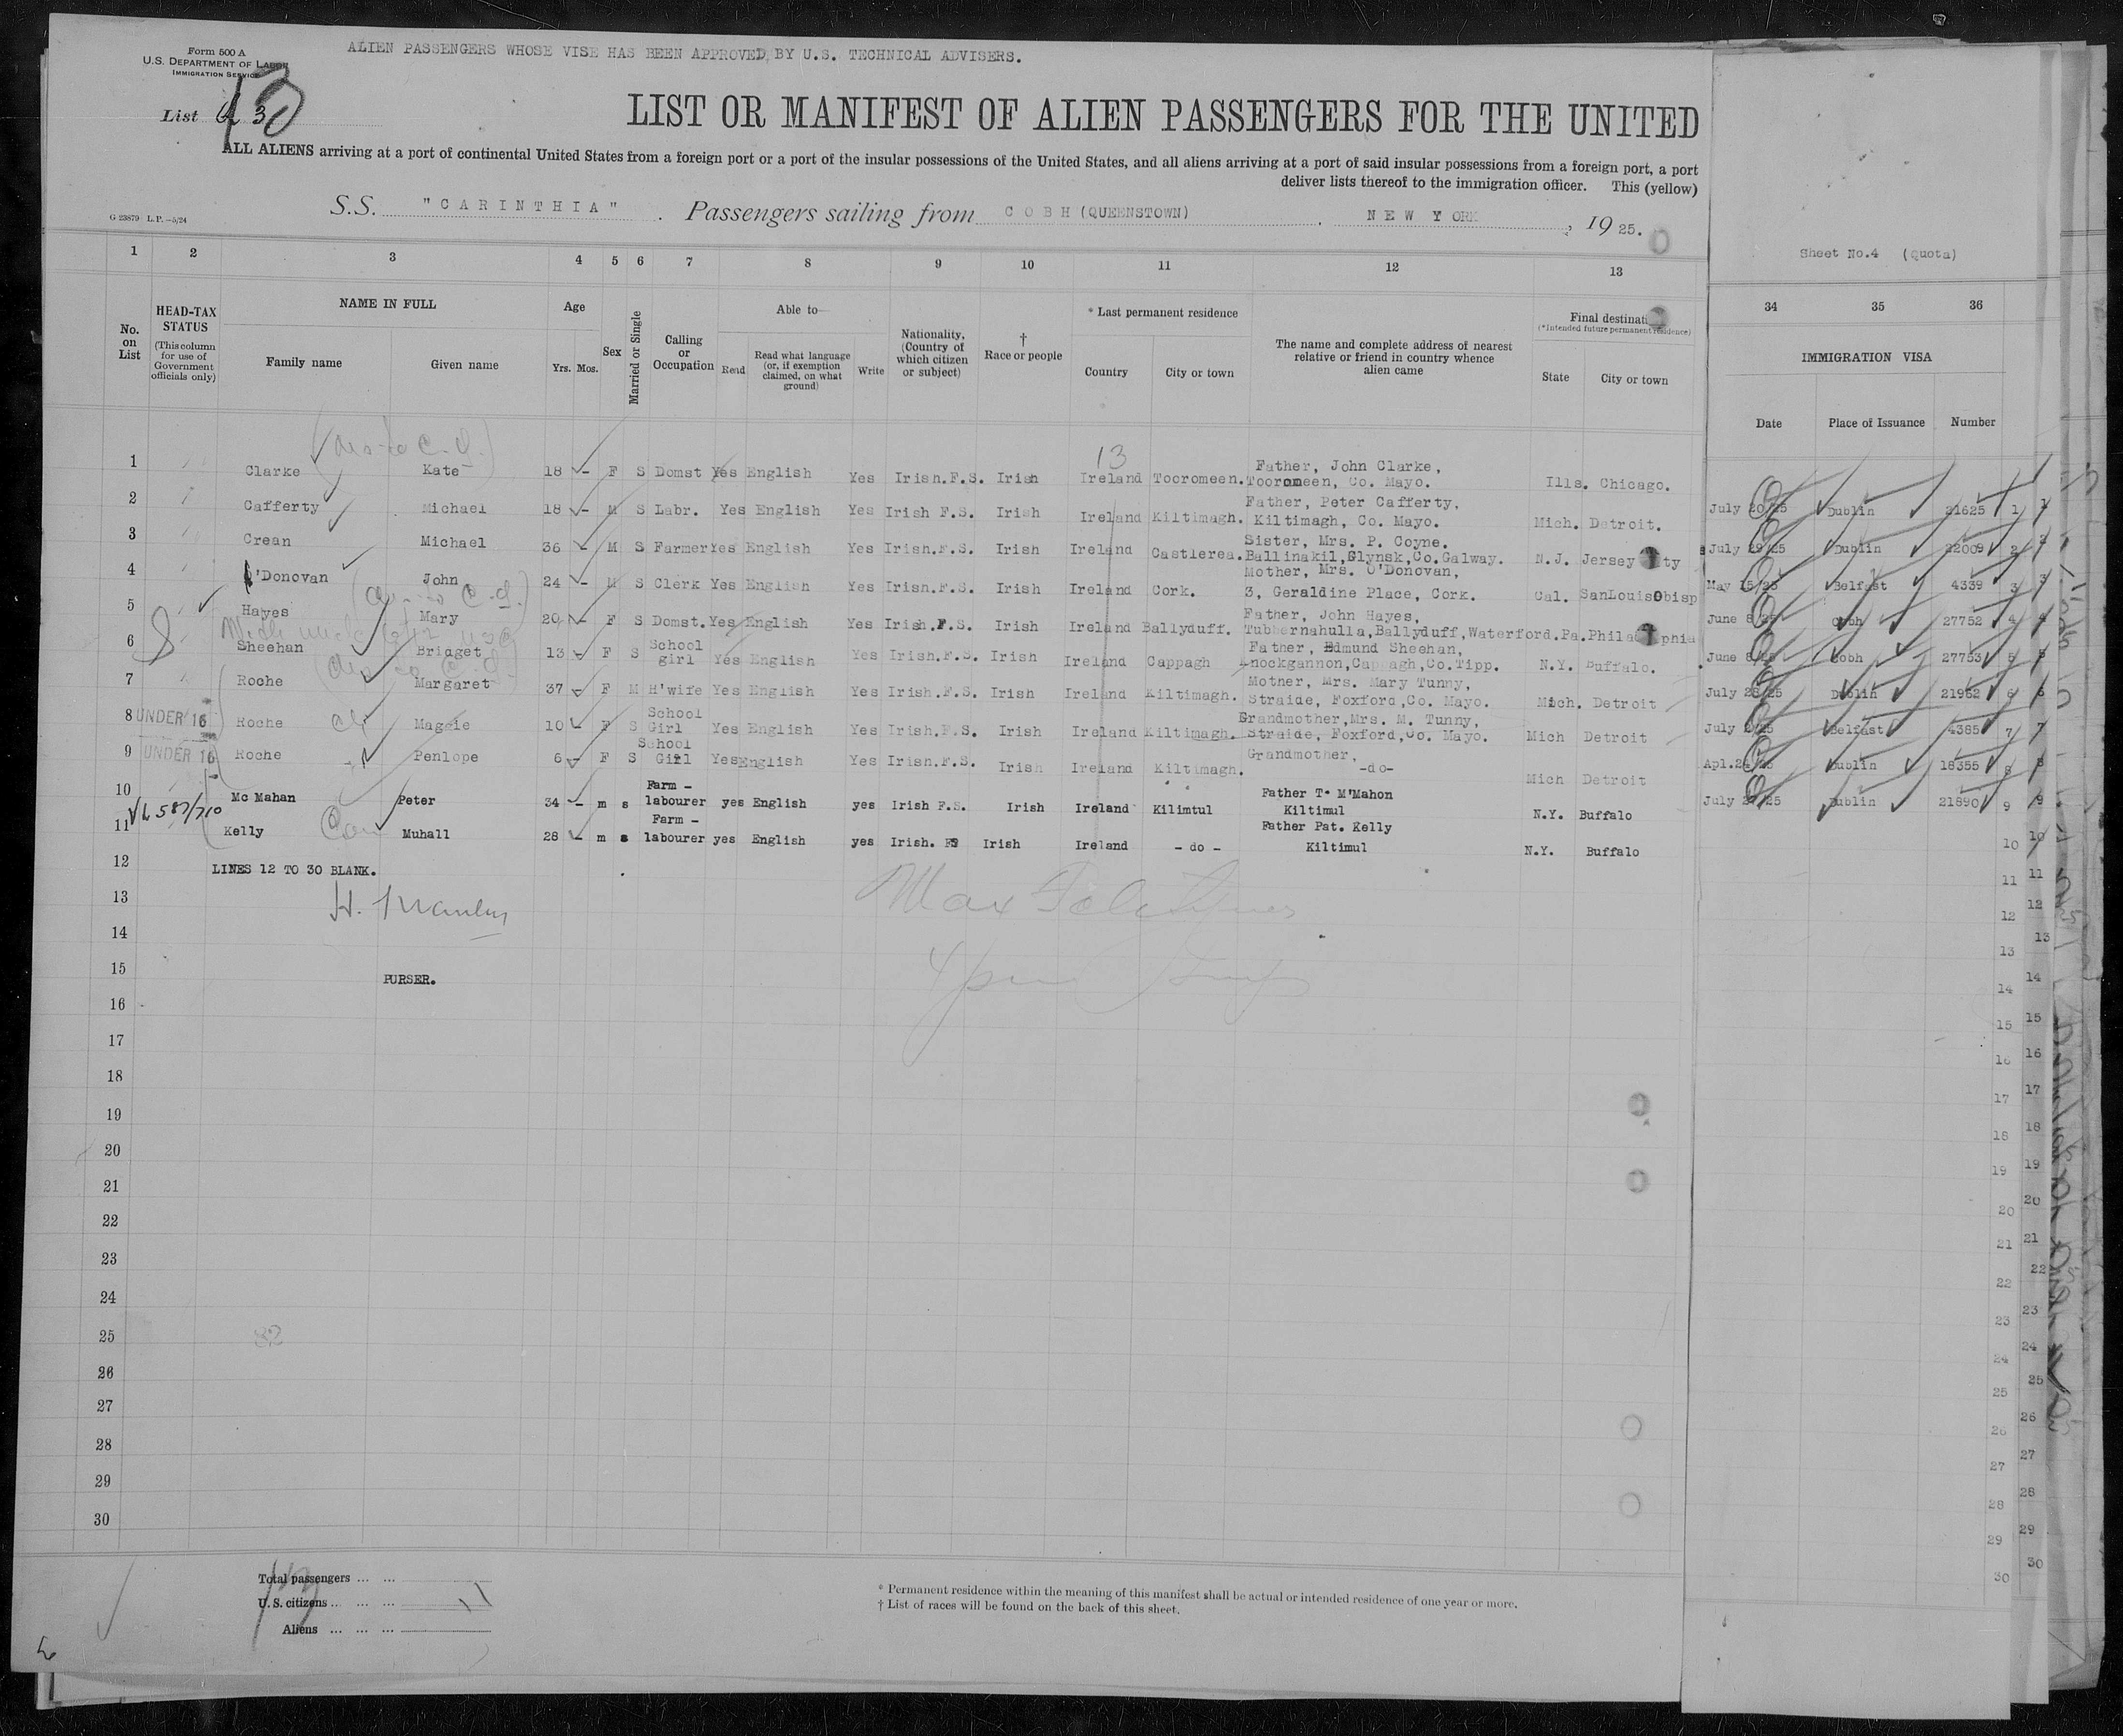 Form 500 A
U.S. DEPARTMENT OF LABOR
IMMIGRATION SERVICE
ALIEN PASSENGERS WHOSE VISE HAS BEEN APPROVED BY U.S. TECHNICAL ADVISERS.
List 30
LIST OR MANIFEST OF ALIEN PASSENGERS FOR THE UNITED
ALL ALIENS arriving at a port of continental United States from a foreign port or a port of the insular possessions of the United States, and all aliens arriving at a port of said insular possessions from a foreign port, a port
deliver lists thereof to the immigration officer. This (yellow)
S.S. "CARINTHIA". Passengers sailing from COBH (QUEENSTOWN). NEW YORK, 1925.
G 23879 L.P.-5/24
Sheet No.4 (Quota)
1 2 3 4 5 6 7 8 9 10 11 12 13 34 35 36
No. on List
HEAD-TAX STATUS
(This column for use of Government officials only)
NAME IN FULL
Family name Given name
Age
Yrs. Mos.
Sex
Married or Single
Calling or Occupation
Able to—
Read
Read what language (or, if exemption claimed, on what ground)
Write
Nationality, (Country of which citizen or subject)
† Race or people
* Last permanent residence
Country City or town
The name and complete address of nearest relative or friend in country whence alien came
Final destinati
(*Intended future permanent residence)
State City or town
IMMIGRATION VISA
Date Place of Issuance Number
13
1 Clarke Kate 18 - F S Domst Yes English Yes Irish.F.S. Irish Ireland Tooromeen. Father, John Clarke, Tooromeen, Co. Mayo. Ills. Chicago.
July 20/25 Dublin 21625 1
2 Cafferty Michael 18 - M S Labr. Yes English Yes Irish F.S. Irish Ireland Kiltimagh. Father, Peter Cafferty. Kiltimagh, Co. Mayo. Mich. Detroit.
July 29/25 Dublin 22009 2
3 Crean Michael 36 - M S Farmer Yes English Yes Irish.F.S. Irish Ireland Castlerea. Sister, Mrs. P. Coyne. Ballinakil,Glynsk,Co.Galway. N.J. Jersey ty
May 15/25 Belfast 4339 3
4 O'Donovan John 24 - M S Clerk Yes English Yes Irish.F.S. Irish Ireland Cork. Mother, Mrs. O'Donovan, 3, Geraldine Place, Cork. Cal. SanLouisObisp
June 8/25 Cobh 27752 4
5 Hayes Mary 20 - F S Domst. Yes English Yes Irish.F.S. Irish Ireland Ballyduff. Father, John Hayes, Tubbernahulla,Ballyduff,Waterford. Pa. Phila phia
June 8/25 Cobh 27753 5
6 Sheehan Bridget 13 - F S School girl Yes English Yes Irish.F.S. Irish Ireland Cappagh Father, Edmund Sheehan, Knockgannon,Cappagh,Co.Tipp. N.Y. Buffalo.
July 28/25 Dublin 21952 6
7 Roche Margaret 37 - F M H'wife Yes English Yes Irish.F.S. Irish Ireland Kiltimagh. Mother, Mrs. Mary Tunny, Straide, Foxford,Co. Mayo. Mich. Detroit
Belfast 4385 7
8 UNDER 16 Roche Maggie 10 - F S School Girl Yes English Yes Irish.F.S. Irish Ireland Kiltimagh. Grandmother,Mrs. M. Tunny, Straide, Foxford,Co. Mayo. Mich Detroit
Apl.24/25 Dublin 18355 8
9 UNDER 16 Roche Penlope 6 - F S School Girl Yes English Yes Irish.F.S. Irish Ireland Kiltimagh. Grandmother, -do- Mich Detroit
Dublin 21890 9
10 Mc Mahan Peter 34 - m s Farm - labourer yes English yes Irish F.S. Irish Ireland Kilimtul Father T. M'Mahon Kiltimul N.Y. Buffalo
11 Kelly Muhall 28 - m s Farm - labourer yes English yes Irish. FS Irish Ireland - do - Father Pat. Kelly Kiltimul N.Y. Buffalo
12 LINES 12 TO 30 BLANK.
13
14
15 PURSER.
16
17
18
19
20
21
22
23
24
25 82
26
27
28
29
30
Total passengers ... ...
U.S. citizens ... ... ... 11
Aliens ... ... ...
* Permanent residence within the meaning of this manifest shall be actual or intended residence of one year or more.
† List of races will be found on the back of this sheet.